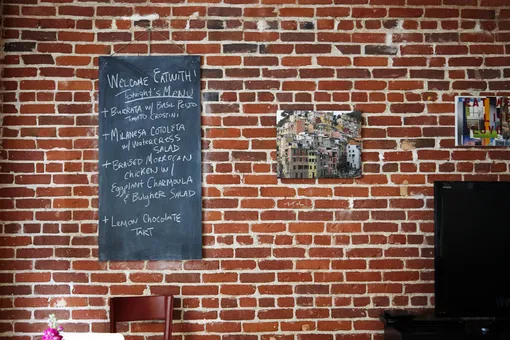 WELCOME EATWITH!
Tonight's MENU
+ BURRATA w/ BASIL PESTO
TOMATO CROSTINI
+ MILANESA COTOLETA
w/ WATERCRESS
SALAD
+ BRAISED MORROCAN
CHICKEN w/
EGGPLANT CHARMOULA
& BULGHER SALAD
+ LEMON CHOCOLATE
TART